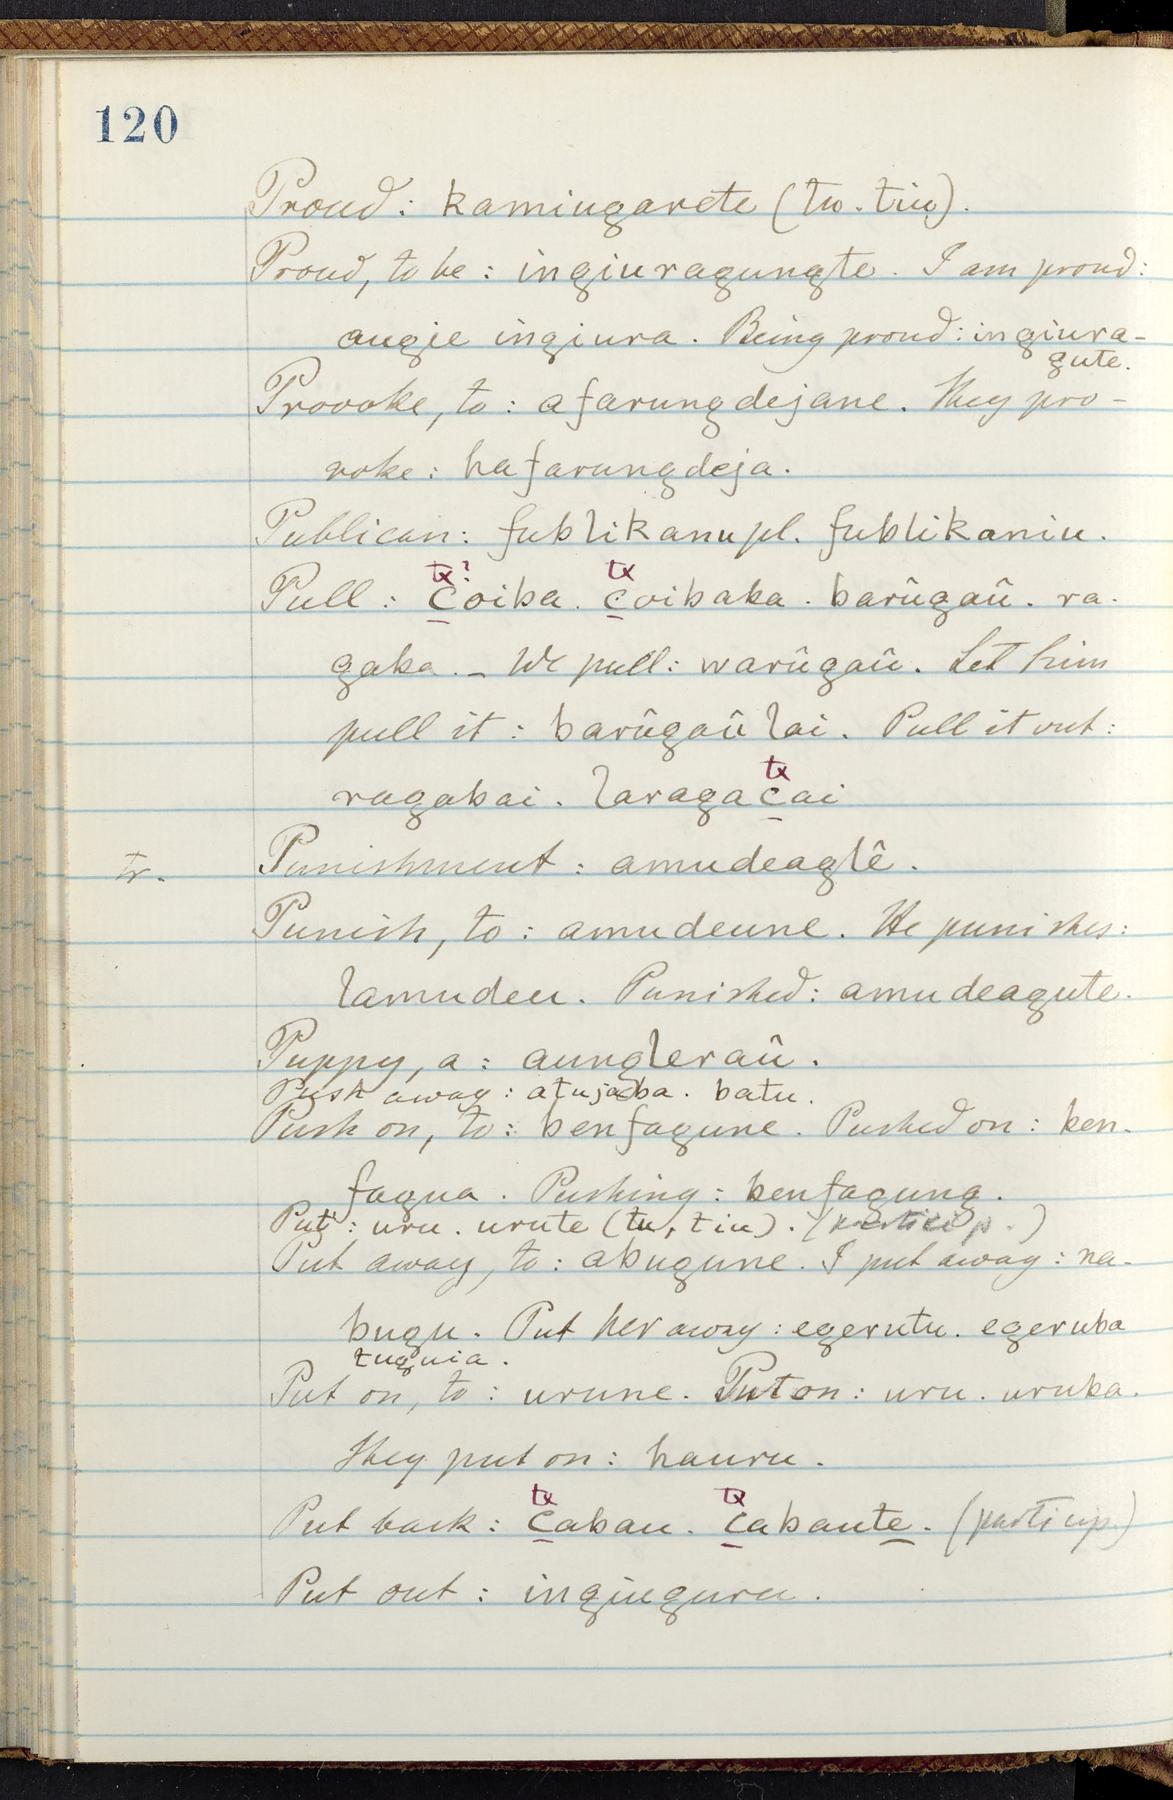 120
Proud: kamiugarete (tu. tiu).
Proud, to be: ingiuragungte. I am proud:
augie ingiura. Being proud: ingiura-
gute.
Provoke, to: afarungdejane. They pro-
voke: hafarungdeja.
Publican: fublikanu pl. fublikaniu.
tx? tx
Pull: c̲oiba. c̲oibaka. barûgaû. ra-
gaka. - We pull: warûgaû. Let him
pull it: barûgaû lai. Pull it out:
tx
ragabai. laragac̲ai
tr. Punishment: amudeaglê.
Punish, to: amudeune. He punishes:
lamudeu. Punished: amudeagute.
Puppy, a: aungleraû.
Push away: batu.
Push on, to: benfagune. Pushed on: ben-
fagua. Pushing: benfagung.
Put: uru. urute (tu, tiu). (particip.)
Put away, to: abugune. I put away: na-
bugu. Put her away: egerutu. egeruba
tuguia.
Put on, to: urune. Put on: uru. uruba.
They put on: hauru.
tx tx
Put back: c̲abau. c̲abaute̲. (particip)
Put out: ingiuguru.